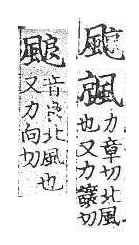 力章切北風
也又力讓切
音北風也
又力向切